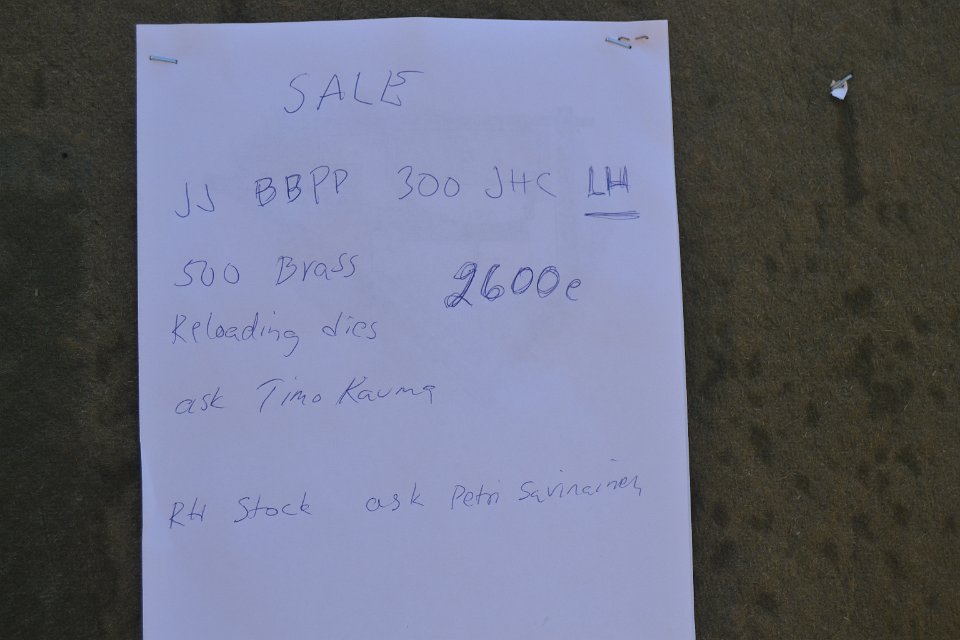 SALE
JJ BBPP 300 JHC LH
500 Brass 2600e
Reloading dies
ask Timo Rauma
RH Stock ask Petri Savinainen